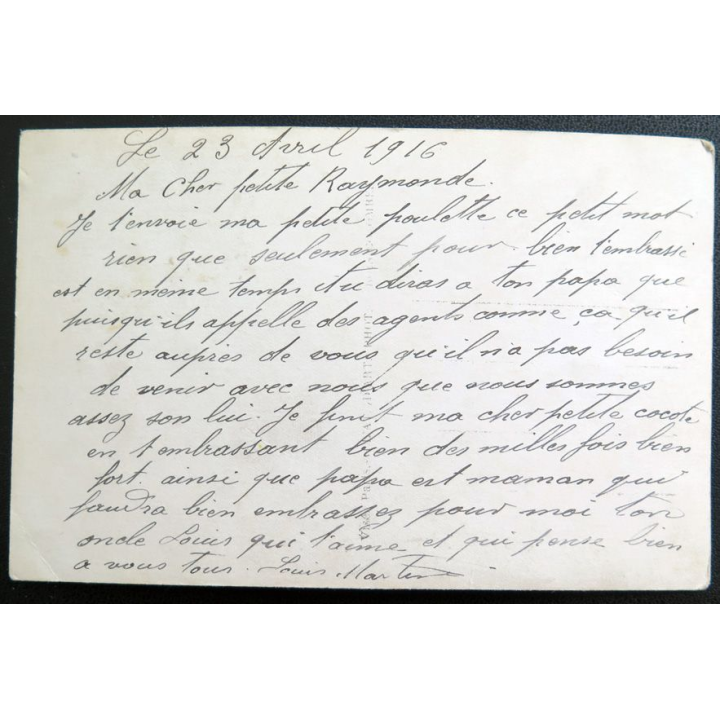 Le 23 Avril 1916
Ma Cher petite Raymonde.
Je t'envoie ma petite poulette ce petit mot
rien que seulement pour bien t'embrassé
est en meme temps tu diras a ton papa que
puisqu'ils appelle des agents comme ça qu'il
reste auprés de vous qu'il n'a pas besoin
de venir avec nous que nous sommes
assez son lui. Je finit ma cher petite cocote
en t'embrassant bien des milles fois bien
fort. ainsi que papa est maman qui
faudra bien embrassez pour moi ton
oncle Louis qui t'aime et qui pense bien
a vous tous. Louis Martin